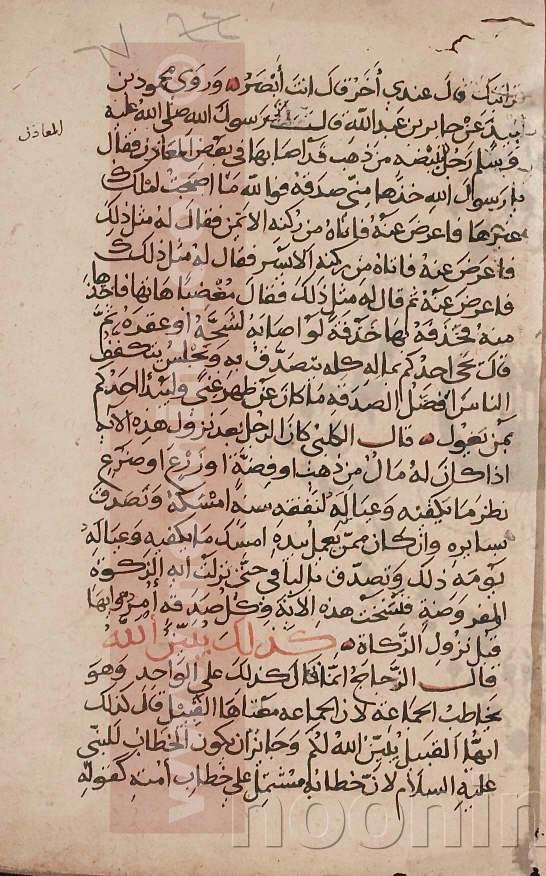 قال عندي أخر قال انت أبصر وروى محمود بن
لبيد عن جابر بن عبد الله قال رسول الله صلى الله عليه
وسلم رجل ببيضه من ذهب قد اصابها في بعض المعادن فقال
المعادن
يا رسول الله خذها مني صدقة فوالله ما اصبحت املك
غيرها فاعرض عنه فاتاه من ركنه الايمن فقال له مثل ذلك
فاعرض عنه فاتاه من ركنه الايسر فقال له مثل ذلك
فاعرض عنه ثم قال له مثل ذلك فقال مغضبا هاتها فاخذها
منه فخذفه بها خذفة لو اصابه لشجه او عقره ثم
قال يجي احدكم بماله كله يتصدق به ويجلس يتكفف
الناس افضل الصدقه ما كان عن ظهر غنى وليبدأ احدكم
بمن يعول قال الكلبي كان الرجل بعد نزول هذه الآية
اذا كان له مال من ذهب او فضة او زرع او ضرع
نظر ما يكفيه وعياله لنفقه سنه امسكه وتصدق
بسايره وان كان ممن يعمل بيده امسك ما يكفيه وعياله
يومه ذلك وتصدق بالباقي حتى نزلت ايه الزكوة
المفروضة فنسخت هذه الآية وكل صدقه أمروا بها
قبل نزول الزكاة كذلك يبين الله
قال الزجاج انما قال كذلك على الواحد وهو
يخاطب الجماعة لان الجماعه معناها القبيل قال كذلك
ايها القبيل يبين الله لكم وجائز ان يكون الخطاب للنبي
عليه السلام لان خطابه مشتمل على خطاب أمته كقوله
noonin